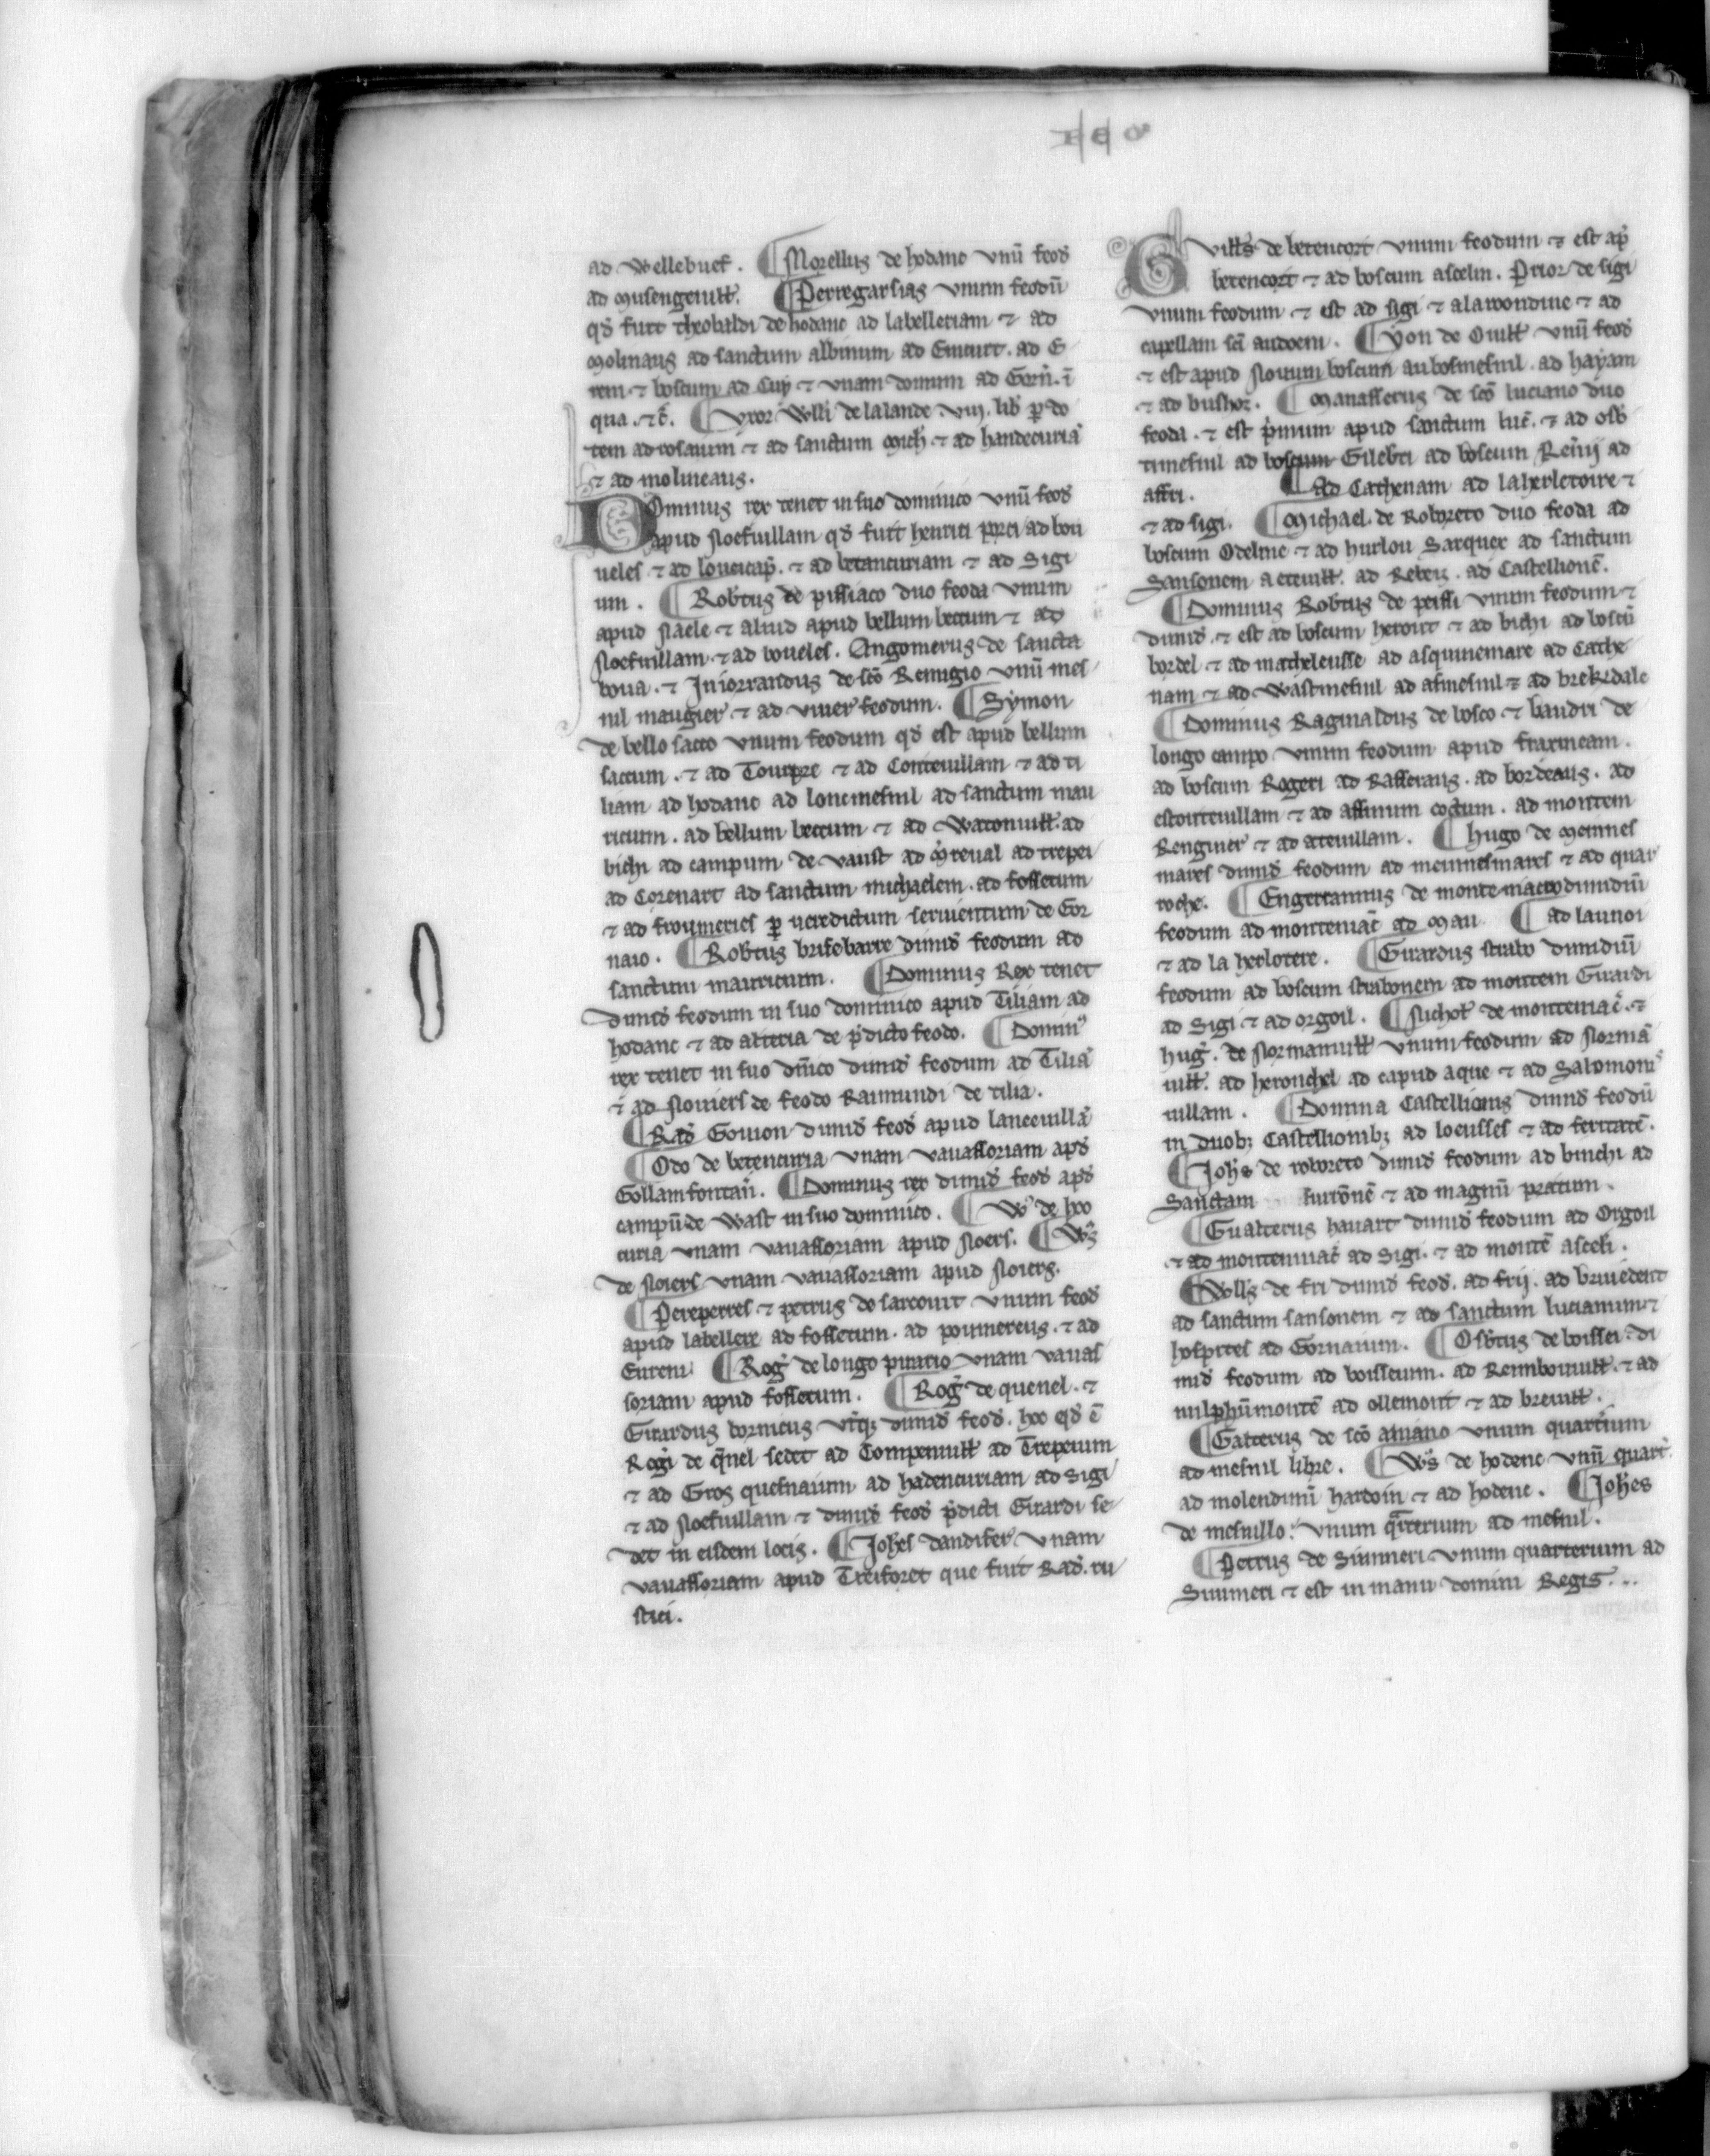 ad Wellebuef. ¶ Morellus de hodanc vnū feod̄
ad musengeiuiƚƚ. ¶ Perregarsias vnum feodū
qd̄ fuit theobaldi de hodanc ad labelleriam ⁊ ad
molinaus ad sanctum albinum ad Emcurt. ad E
rem. ⁊ boscum ad Cuy ⁊ vnam domum ad Gorn̄. ī
qua. ⁊c̄. ¶ Vxor Wƚƚi de lalande viij. lib̄ ꝑ do
tem ad rosaium ⁊ ad sanctum mich̄ ⁊ ad handecuriā
⁊ ad molineaus.
Dominus rex tenet in suo dominico vnū feod̄
apud Noefuillam qd̄ fuit henrici porci ad bou
ueles ⁊ ad louecap̄. ⁊ ad betancuriam ⁊ ad Sigi
um. ¶ Rob̄tus de pissiaco duo feoda vnum
apud Naele ⁊ aliud apud bellum beccum ⁊ ad
Noefuillam ⁊ ad boueles. Angomerus de sancta
boua. ⁊ Iniorrandus de sc̄o Remigio vnū mes
nil maugier ⁊ ad viuer feodum. ¶ Symon
de bello sacco vnum feodum qd̄ est apud bellum
saccum. ⁊ ad Tourpre ⁊ ad Conteuillam ⁊ ad ti
liam ad hodanc ad lonemesnil ad sanctum mau
ricium. ad bellum beccum ⁊ ad Watonuiƚƚ. ad
bichi ad campum de vaust ad m̄reual ad trepei
ad Corenart ad sanctum michaelem. ad fossetum
⁊ ad froumeries ꝑ ueredictum seruientum de Gor
naio. ¶ Rob̄tus brisebarre dimid̄ feodum ad
sanctum mauricium. ¶ Dominus Rex tenet
dimid̄ feodum in suo dominico apud Tiliam ad
hodanc ⁊ ad aliteria de p̄dicto feodo. ¶ Domin᾽
rex tenet in suo dn̄ico dimid̄ feodum ad Tiliā
⁊ ad Nouiers de feodo Raimundi de tilia.
¶ Rad̄ Gouion dimid̄ feod̄ apud lanceuillā
¶ Odo de betencuria vnam vauassoriam apd̄
Gollamfontan̄. ¶ Dominus rex dimid̄ feod̄ apd̄
campū de Wast in suo dominico. ¶ W᾽ de hoo
curia vnam vauassoriam apud Noers. ¶ W᾽s
de Noiers vnam vauassoriam apud Noiers.
¶ Pereperres ⁊ petrus de sarcourt vnum feod̄
apud labellere ad fossetum. ad poumereus. ⁊ ad
Eurem. ¶ Roḡ de longo piratio vnam vauas
soriam apud fossetum. ¶ Roḡ de quenel. ⁊
Girardus bornicus vtq; dimid̄ feod̄. hoc qd̄ ē
Roḡi de q̄nel sedet ad Compenuiƚƚ ad Trepeium
⁊ ad Gros quesnaium ad hadencuriam ad sigi
⁊ ad Noefuillam ⁊ dimid̄ feod̄ p̄dicti Girardi se
det in eisdem locis. ¶ Joh̄es dandifer vnam
vauassoriam apud Treiforet que fuit Rad̄. ru
stici.
Guiƚƚs de betencort vnum feodum ⁊ est ap̄
betencort ⁊ ad boscum ascelin. Prior de sigi
vnum feodum ⁊ est ad sigi ⁊ alawondiue ⁊ ad
capellam sc̄i audoeni. ¶ Yon de Ouiƚƚ vnū feod̄
⁊ est apud Nouum boscum aubosmesnil. ad hayam
⁊ ad bushoz. ¶ Manasserus de sc̄o luciano duo
feoda. ⁊ est p̄mum apud sanctum luc̄. ⁊ ad osb̄
timesnil ad boscum Gileb̄ti ad boscum Reinij ad
affri. ¶ Ad Cathenam ad laherletoire ⁊
⁊ ad sigi. ¶ Michael. de Roboreto duo feoda ad
boscum Odelme ⁊ ad hurlou Sarquer ad sanctum
Sansonem aeteuiƚƚ. ad Rebez. ad Castellionē.
¶ Dominus Rob̄tus de peissi vnum feodum ⁊
dimid̄. ⁊ est ad boscum heront ⁊ ad bichi ad boscū
bordel ⁊ ad macheleusse ad asquinemare ad Cathe
nam ⁊ ad Wastmesnil ad asmesnil ⁊ ad brekedale
¶ Dominus Raginaldus de bosco ⁊ baudri de
longo campo vnum feodum apud fraxineam.
ad boscum Rogeri ad Rafferaus. ad bordeaus. ad
estouteuillam ⁊ ad assinum coctum. ad montem
Renguier ⁊ ad atteuillam. ¶ Hugo de meinnes
mares dimid̄ feodum ad meunesmares ⁊ ad quar
roche. ¶ Engerrannus de monte-macro dimidiū
feodum ad monteniac̄ ad Mau. ¶ ad launoi
⁊ ad la herlotere. ¶ Girardus strabo dimidiū
feodum ad boscum strabonem ad montem Girardi
ad Sigi ⁊ ad orgoil. ¶ Nichoƚ de monteniac̄. ⁊
hug̅. de Normanuiƚƚ vnum feodum ad Normā
uiƚƚ. ad heronchel ad capud aque ⁊ ad Salomonis
uillam. ¶ Domina Castellionis dimid̄ feodū
in duob; Castellionib; ad loeusses ⁊ ad feritatē.
¶ Joh̄s de roboreto dimid̄ feodum ad binchi ad
Sanctam furōnē ⁊ ad magnū pratum.
¶ Gualterus hauart dimid̄ feodum ad Orgoil
⁊ ad montenuiac̄ ad Sigi. ⁊ ad montē asceli.
¶ Wƚƚs de fri dimid̄ feod̄. ad frij. ad bruuedent
ad sanctum sansonem ⁊ ad sanctum lucianum ⁊
hospites ad Gornaium. ¶ Osb̄tus de boissei. di
mid̄ feodum ad boisseium. ad Reimbouuiƚƚ. ⁊ ad
nulphūmontē ad ollemont ⁊ ad breuiƚƚ.
¶ Galterus de sc̄o aniano vnum quartium
ad mesnil libre. ¶ W᾽s de hodenc vnū quart̄.
ad molendinū hardoin ⁊ ad hodene. ¶ Joh̄es
de mesnillo. vnum q̄rterium ad mesnil.
¶ Petrus de Siunneri vnum quarterium ad
Siunneri ⁊ est in manu domini Regis...